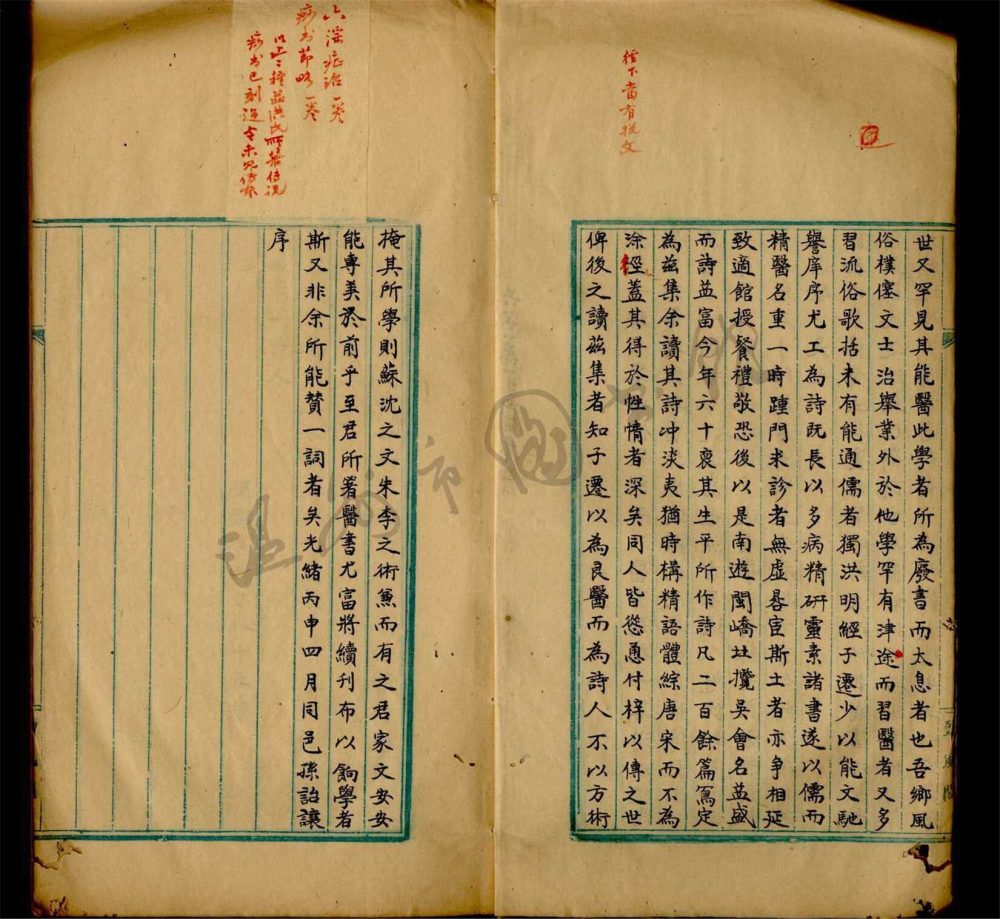 徑下當有敓文
世又罕見其能醫此學者所為廢書而太息者也吾鄉風
俗樸僿文士治舉業外於他學罕有津途而習醫者又多
習流俗歌括未有能通儒者獨洪明經子遷少以能文馳
譽庠序尤工為詩既長以多病精研靈素諸書遂以儒而
精醫名重一時踵門求診者無虛晷宦斯土者亦爭相延
致適館授餐禮敬恐後以是南遊閩嶠北攬吳會名益盛
而詩益富今年六十裒其生平所作詩凡二百餘篇寫定
為茲集余讀其詩沖淡夷猶時構精語體綜唐宋而不為
涂徑蓋其得於性情者深矣同人皆慫恿付梓以傳之世
俾後之讀茲集者知子遷以為良醫而為詩人不以方術
六淫症治一卷
痧書節略一卷
以上二種並洪氏所著
痧書已刻
掩其所學則蘇沈之文朱李之術兼而有之君家文安安
能專美於前乎至君所箸醫書尤富將續刊布以餉學者
斯又非余所能贊一詞者矣光緒丙申四月同邑孫詒讓
序
溫州市圖書館